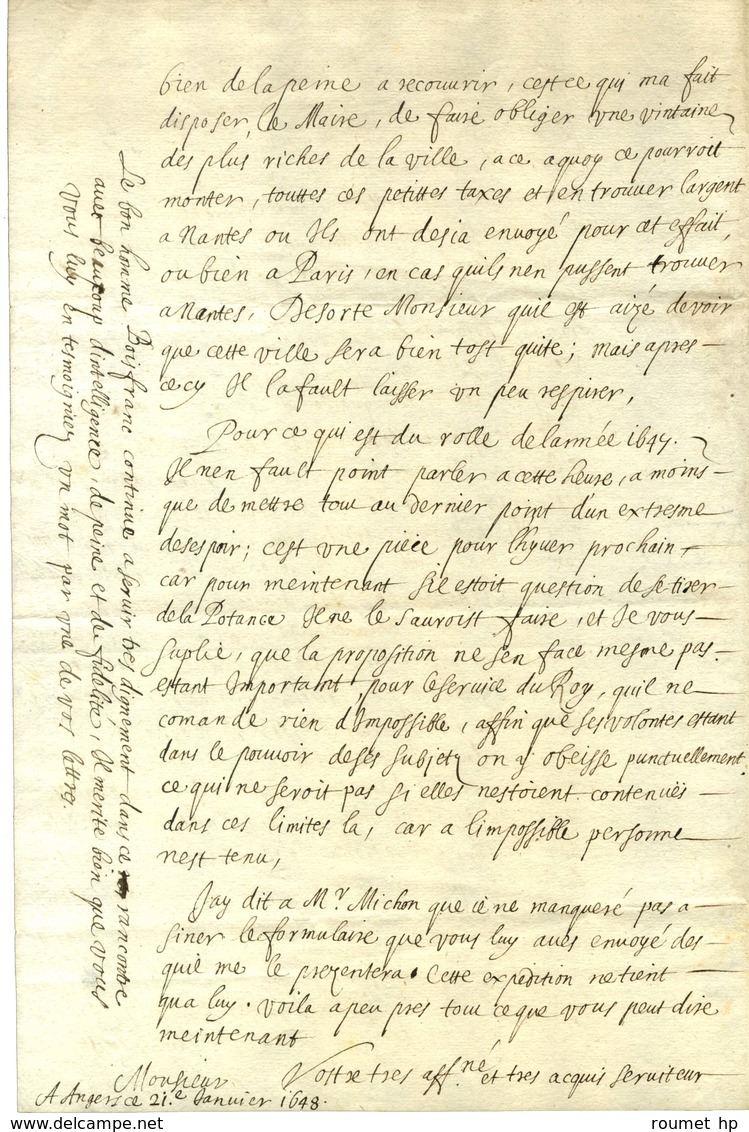 bien de la peine a recouvrir, c'est ce qui ma fait
disposer, le Maire, de faire obliger une vintaine
des plus riches de la ville, a ce a quoy ce pourroit
monter, touttes ces petittes taxes et en trouver largent
a Nantes ou Ils ont desia envoyé pour cet effait,
ou bien a Paris, en cas quils nen pussent trouver
a Nantes, Desorte Monsieur quil est aizé de voir
que cette ville sera bien tost quite; mais apres
cecy Il la fault laisser un peu respirer,
Pour ce qui est du rolle de lannée 1647.
Il nen fault point parler a cette heure, a moins
que de mettre tout au dernier point d'un extresme
desespoir; cest une piece pour lhyver prochain
car pour meintenant sil estoit question de se tirer
de la Potance Il ne le sauroist faire, et Je vous
suplie, que la proposition ne s'en face mesme pas.
estant Important pour le service du Roy, quil ne
comande rien d'Impossible, affin que ses volontes estant
dans le pouvoir de ses subjetz on y obeisse punctuellement
ce qui ne seroit pas si elles nestoient contenuës
dans ces limites la, car a l'impossible personne
nest tenu,
Jay dit a Mr. Michon que ie ne manqueré pas a
siner le formulaire que vous luy aués envoyé des
quil me le prezentera. Cette expedition ne tient
qua luy. Voila a peu pres tout ce que vous peut dire
meintenant
Monsieur Vostre tres aff.né et tres acquis serviteur
A Angers ce 21.e Janvier 1648.
Le bon homme Boisfranc continue a servir tres dignement dans ce rancontre
avec beaucoup d'intelligence, de peine et de fidelité, Il merite bien que vous
vous luy en tesmoigniez un mot par une de vos lettres.
roumet hp